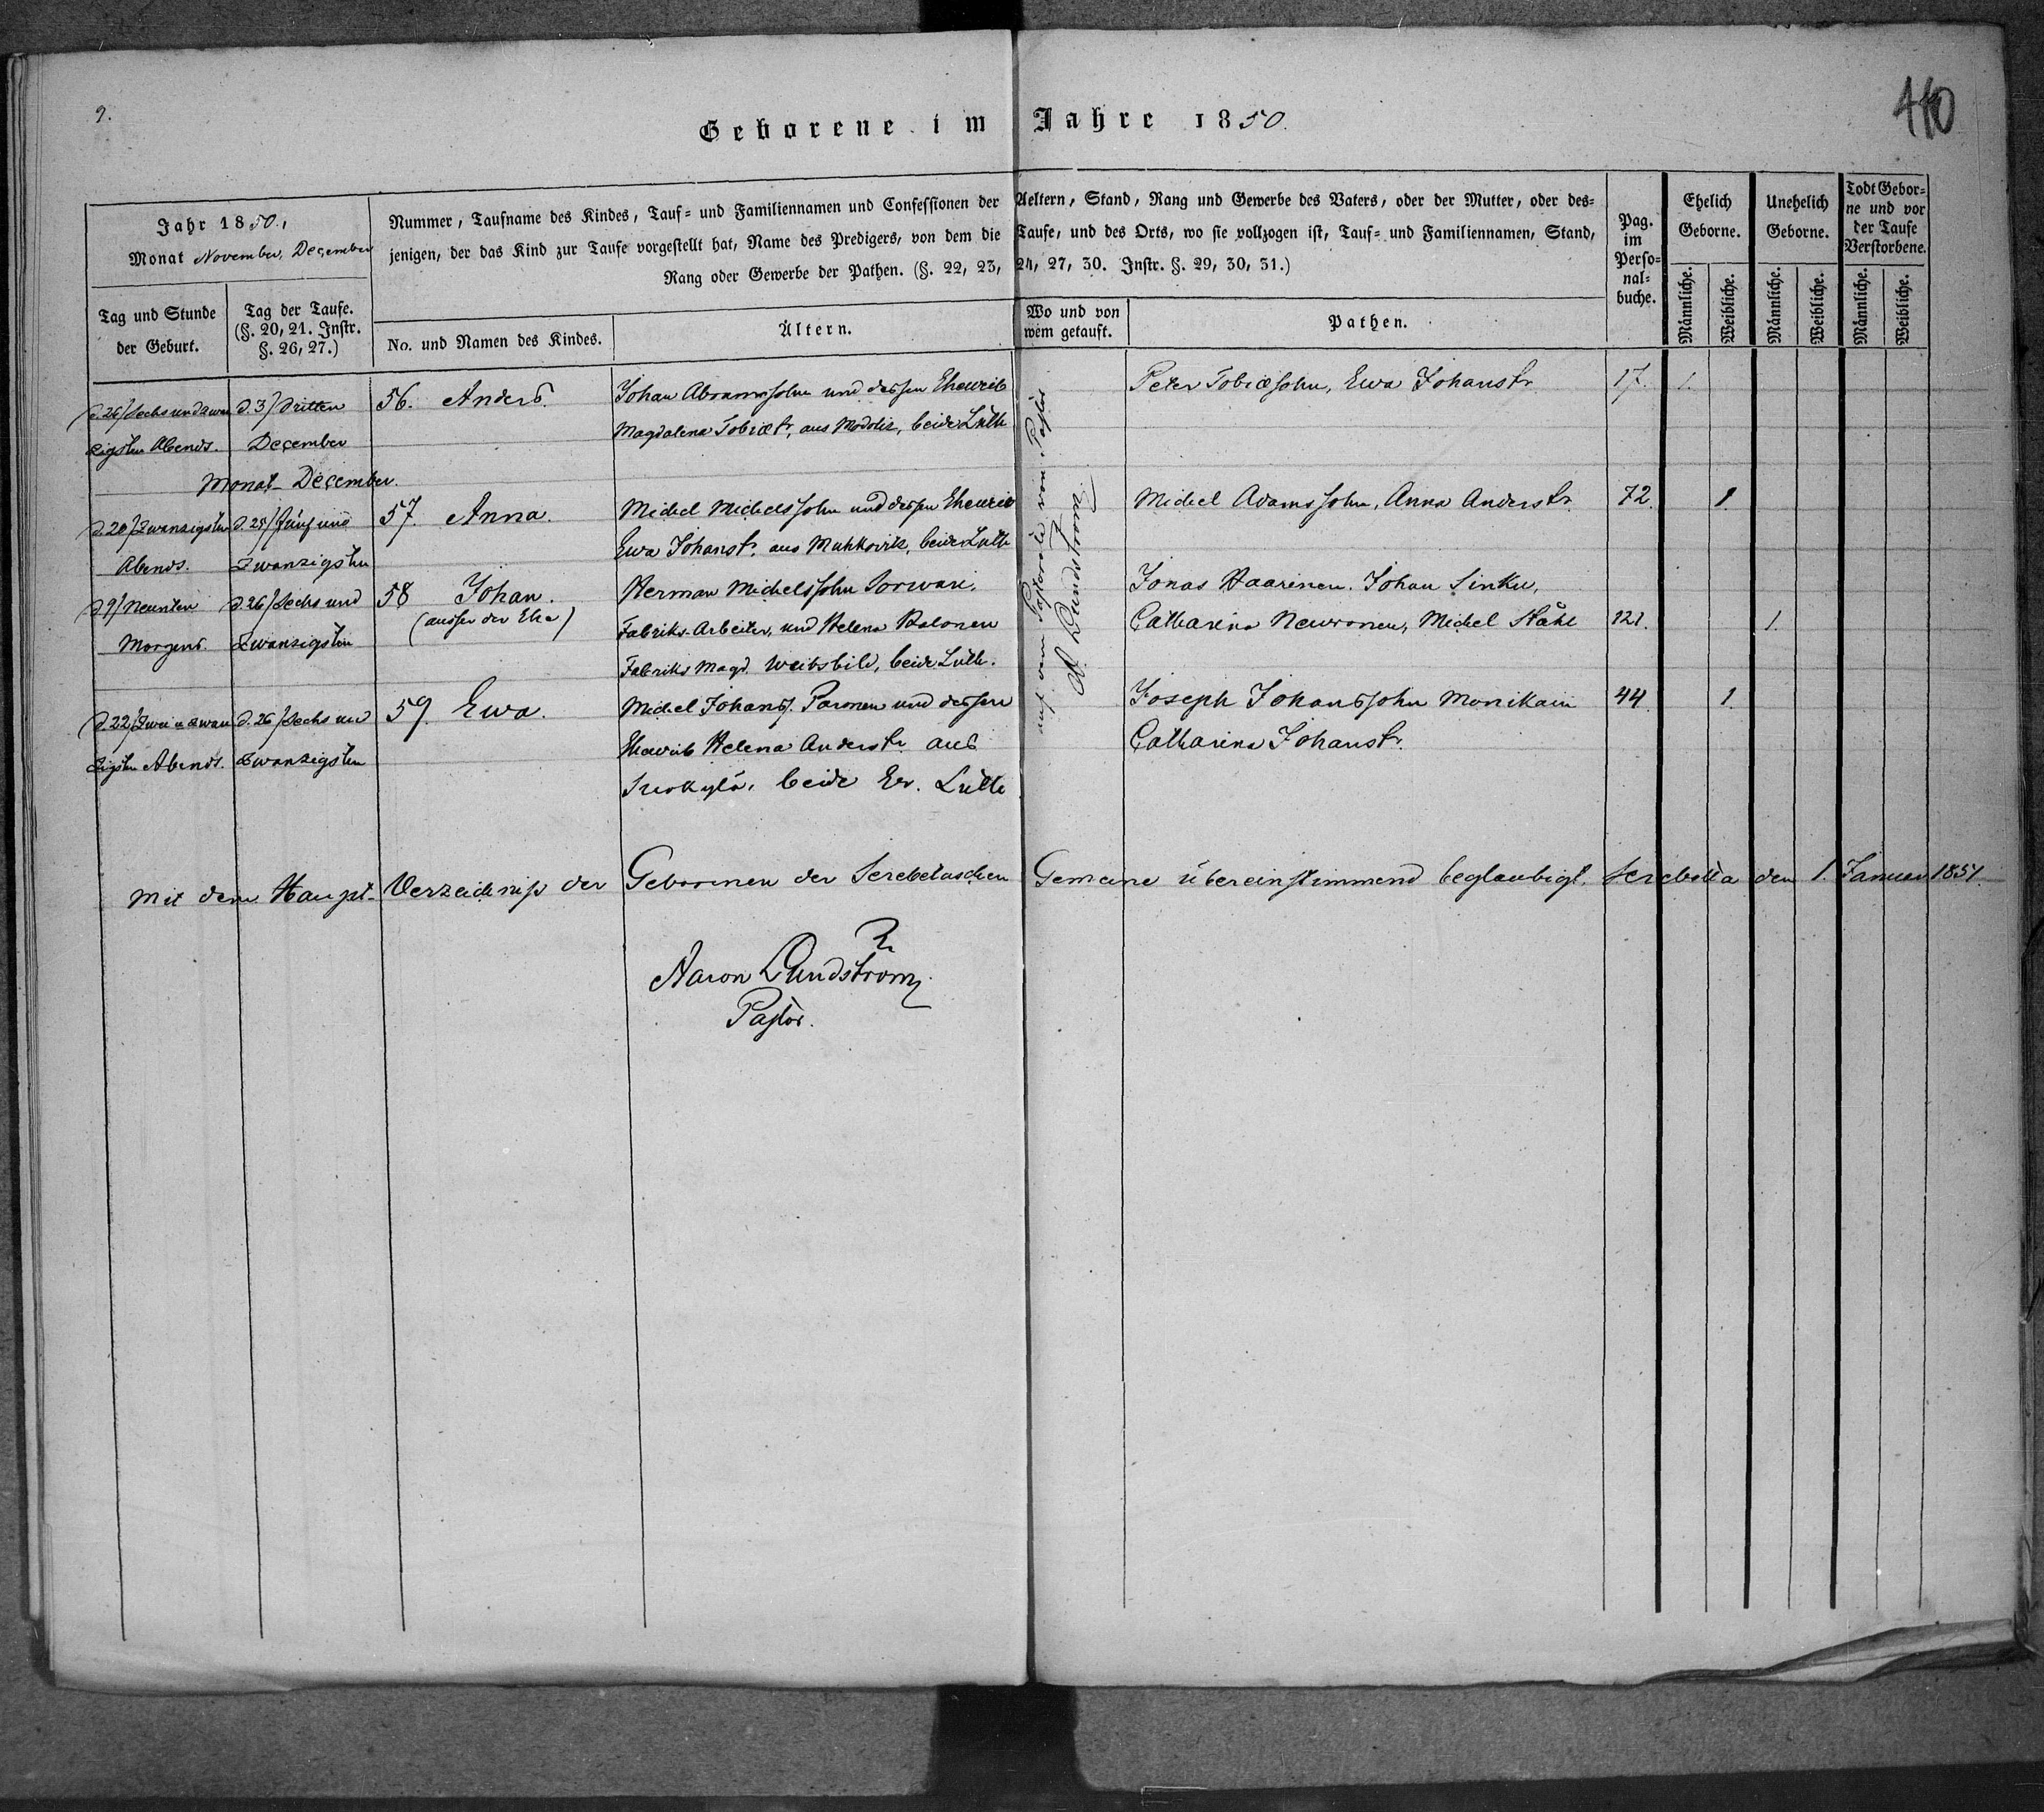 9.
410
Geborene im Jahre 1850.
Jahr 1850.,
Monat November, December
Nummer, Taufname des Kindes, Tauf= und Familiennamen und Confessionen der Aeltern, Stand, Rang und Gewerbe des Vaters, oder der Mutter, oder des=
jenigen, der das Kind zur Taufe vorgestellt hat, Name des Predigers, von dem die Taufe, und des Orts, wo sie vollzogen ist, Tauf= und Familiennamen, Stand,
Rang oder Gewerbe der Pathen. (§. 22, 23, 24, 27, 30. Instr. §. 29, 30, 31.)
Pag.
im
Perso=
nal=
buche.
Ehelich
Geborne.
Unehelich
Geborne.
Todt Gebor=
ne und vor
der Taufe
Verstorbene.
Tag und Stunde
der Geburt.
Tag der Taufe.
(§. 20, 21. Instr.
§. 26, 27.)
No. und Namen des Kindes.
Ältern.
Wo und von
wem getauft.
Pathen.
Männliche.
Weibliche.
Männliche.
Weibliche.
Männliche.
Weibliche.
d. 26/ Sechs und zwan d. 3/ Dritten 56. Anders. Johan Abramssohn und dessen Eheweib Peter Tobiæsohn, Ewa Johanstr. 17. 1.
zigsten Abends. December Magdalena Tobiætr, aus beide Luth
Monat December.
d. 20/ Zwanzigsten d. 25/ Fünf und 57. Anna. Michel Michelssohn und dessen Eheweib Michel Adamssohn, Anna Anderstr. 72. 1.
Abends. Zwanzigsten Ewa Johanstr. aus beide Luth
d. 9/ Neunten d. 26/ Sechs und 58 Johan. Herman Michelssohn Sorwari, Jonas Haarinen. Johan Sinku,
Morgens. Zwanzigsten (ausser der Ehe) Fabriks-Arbeiter, und Helena Halonen Catharina Newronen, Michel Ståhl 121. 1.
Fabriks Magd. Weibsbild, beide Luth.
d. 22/ Zwei u zwan d. 26/ Sechs und 59. Ewa. Michel Johanss. Parnen und dessen Joseph Johanssohn Monikain 44. 1.
zigsten Abends. Zwanzigsten Eheweib Helena Anderstr. aus Catharina Johanstr.
beide Ev. Luth
auf dem Pastorate von Pastor
A. Lundström.
Mit dem Haupt-Verzeichniss der Gebornen der Serebetaschen Gemeine übereinstimmend beglaubigt. Serebetta den 1. Januar 1851.
Aaron Lundström
Pastor.